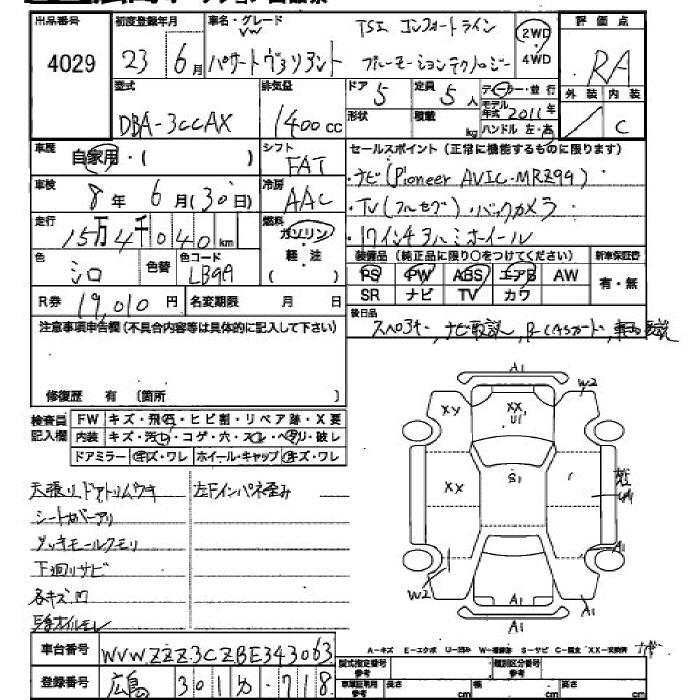 出品番号
4029
初度登録年月
23 6月
車名・グレード
VW TSI コンフォートライン
パサートヴァリアント ブルーモーションテクノロジー
2WD
4WD
評価点
RA
外装 内装
C
型式
DBA-3CCAX
排気量
1400cc
ドア 5
定員 5人
ディーラー・並行
形状
積載 kg
モデル年式 2011年
ハンドル 左・右
車歴
自家用・( )
シフト
FAT
セールスポイント(正常に機能するものに限ります)
・ナビ(Pioneer AVIC-MRZ99)
・TV(フルセグ)・バックカメラ
・17インチアルミホイール
車検
8年 6月(30日)
冷房
AAC
走行
15万4千040km
燃料
ガソリン
軽・油
( )
色
シロ
色替
色コード
LB9A
装備品(純正品に限り○をつけてください)
PS PW ABS エアB AW
SR ナビ TV カワ
新車保証書
有・無
R券 19,010円
名変期限 月 日
後日品
スペアキー, ナビ取説, B-CASカード, 車両取説
注意事項申告欄(不具合内容等は具体的に記入して下さい)
修復歴 有 〔箇所 〕
検査員
記入欄
FW キズ・飛石・ヒビ割・リペア跡・X要
内装 キズ・汚レ・コゲ・穴・スレ・ヘタリ・破レ
ドアミラー キズ・ワレ ホイール・キャップ キズ・ワレ
天張り、ドアトリムウキ
左FインパネS歪み
シートカバーアリ
メッキモールクモリ
下廻リサビ
各キズ凹
A1
W2
XY
XX
U1
S1
XX
U4
A1
W2
A1
A1
A1
A-キズ E-エクボ U-凹み W-補修跡 S-サビ C-腐食 XX-交換済
車台番号
WVWZZZ3CZBE343063
登録番号
広島 301 ゆ 718
型式指定番号
参考
類別区分番号
参考
車庫証明用
参考
長さ cm
幅 cm
高さ cm